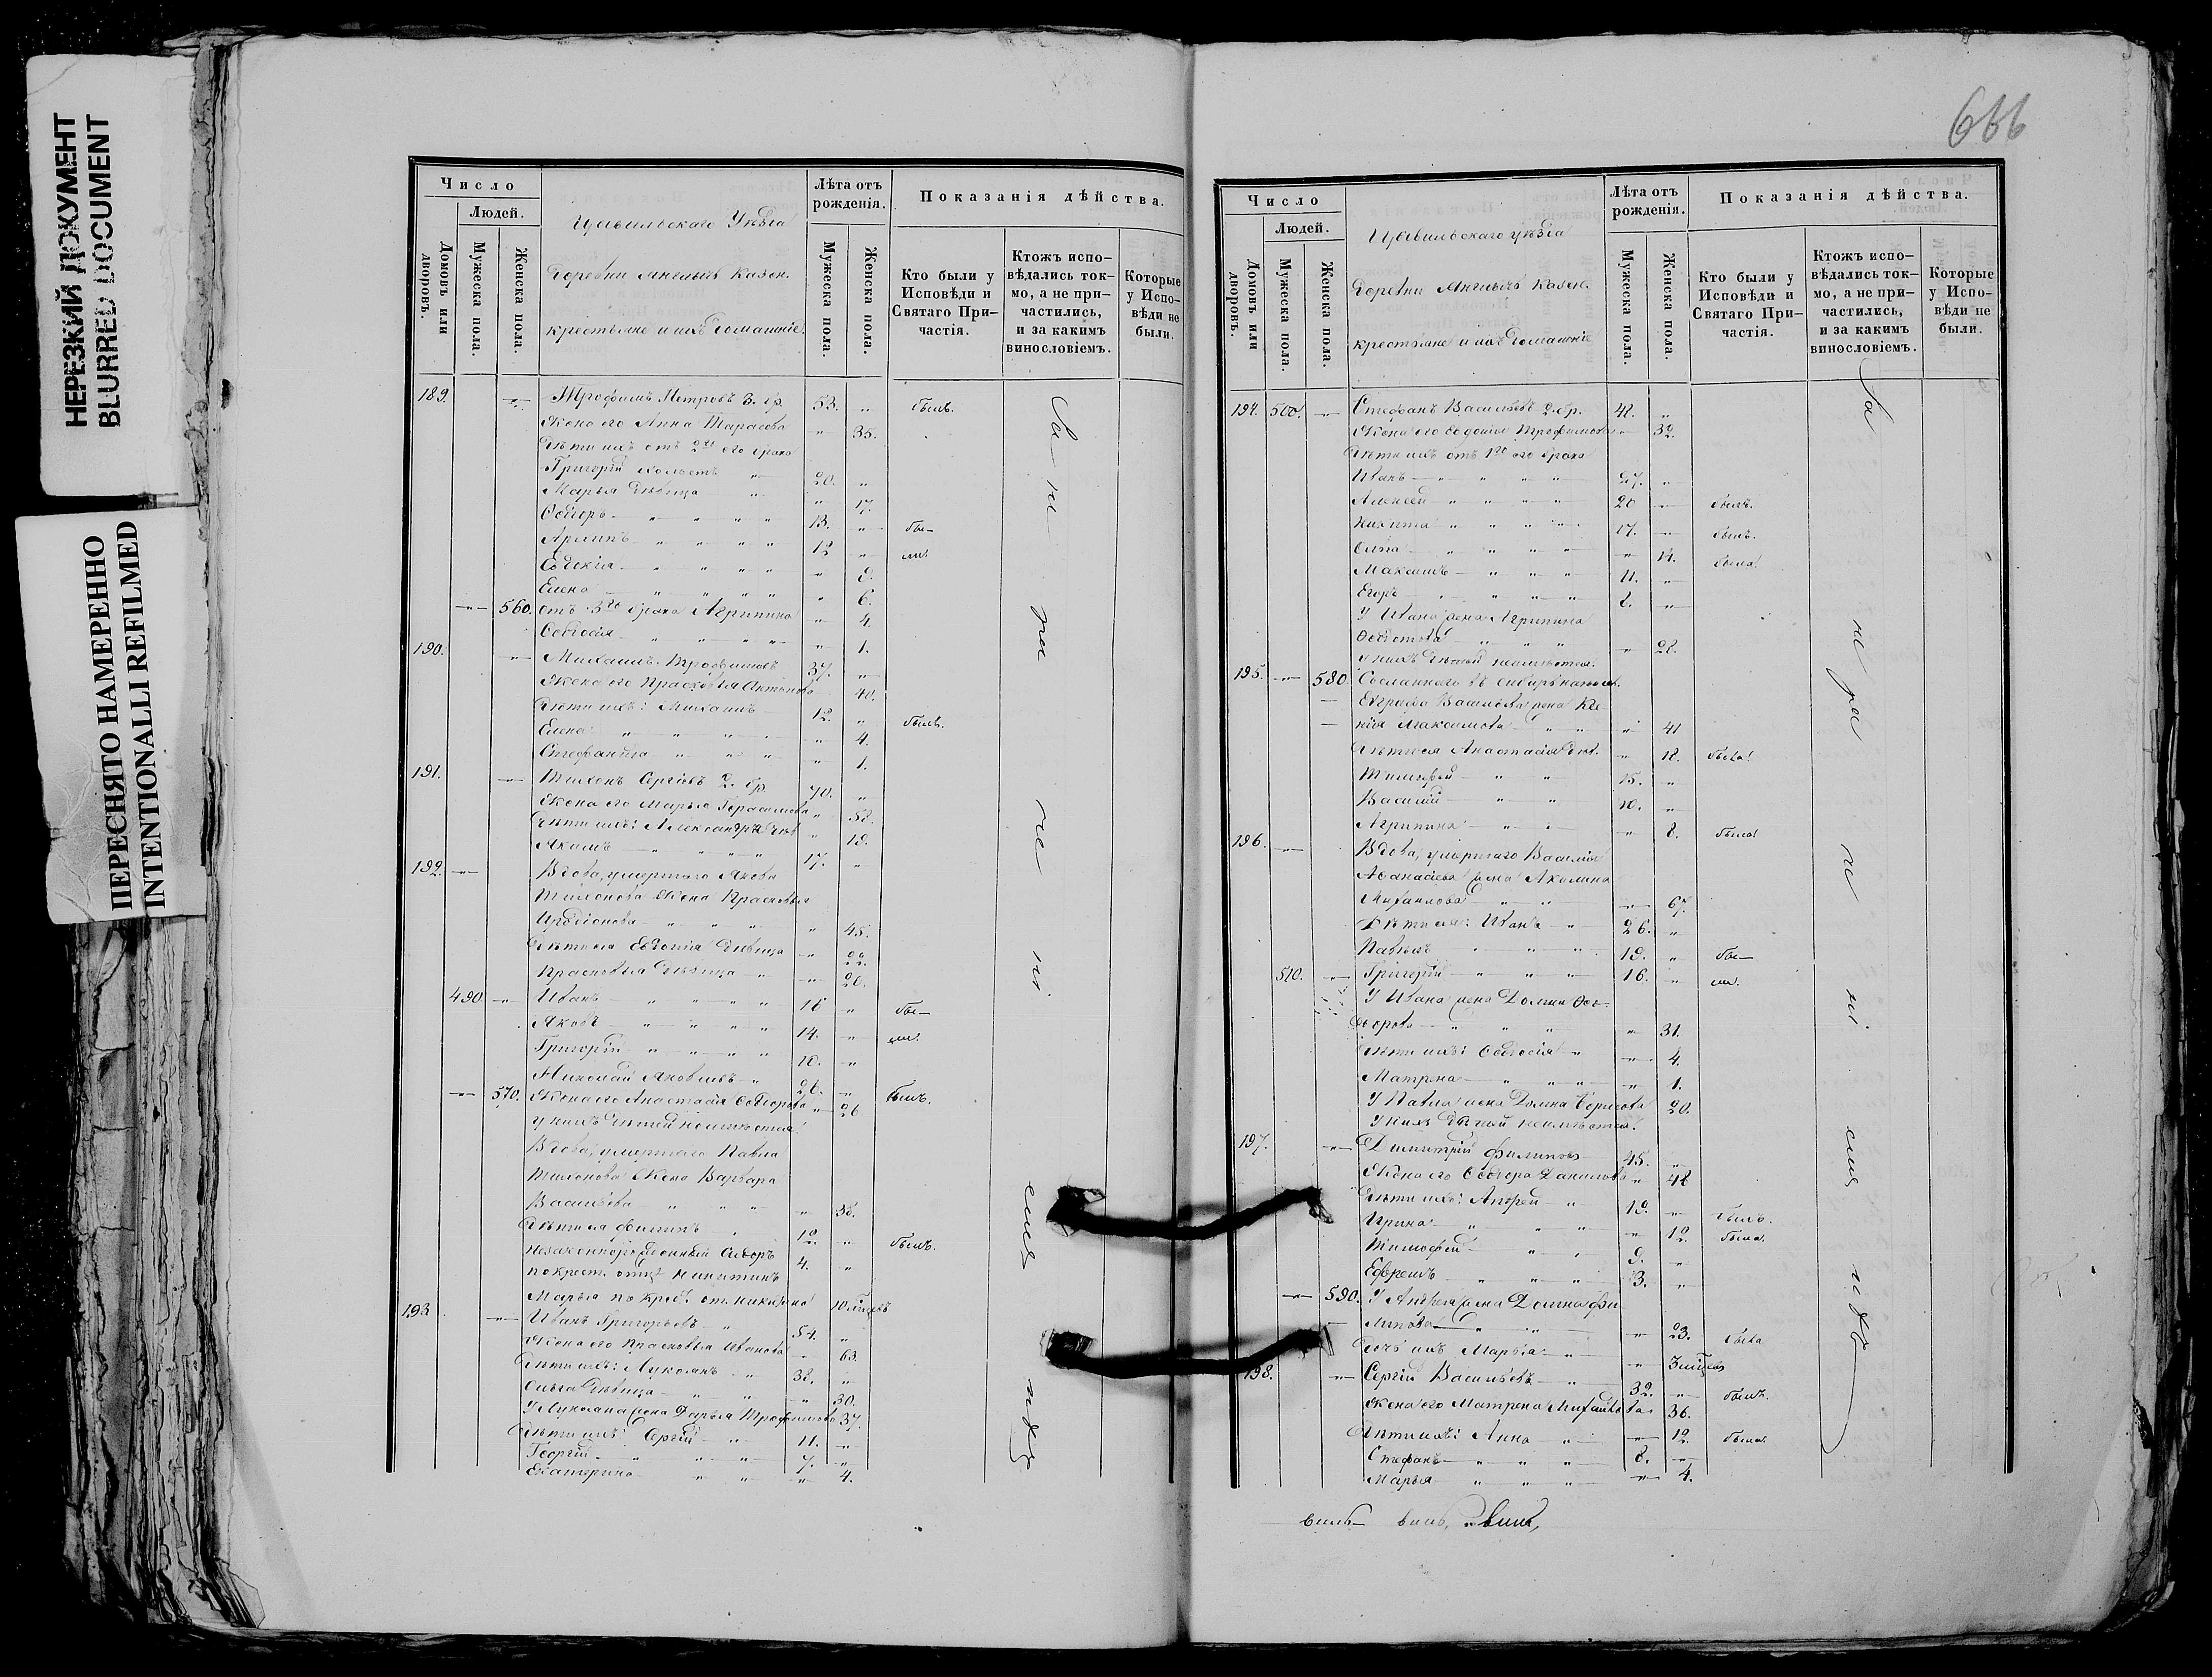 НЕРЕЗКИЙ ДОКУМЕНТ
BLURRED DOCUMENT
ПЕРЕСНЯТО НАМЕРЕННО
INTENTIONALLI REFILMED
Число
Людей.
Домовъ или дворовъ.
Мужеска пола.
Женска пола.
Цивильскаго Уѣзда
Деревни Янгильд. Казен.
крестьяне и ихъ домашніе.
Лѣта отъ рожденія.
Мужеска пола.
Женска пола.
Показанія дѣйства.
Кто были у Исповѣди и Святаго Причастія.
Ктожъ исповѣдались токмо, а не причастились, и за какимъ винословіемъ.
Которые у Исповѣди не были.
189. Трофимъ Петровъ 3. бр. 53. былъ.
Жена его Анна Тарасова 35.
Дѣти ихъ отъ 2го его брака
Григорій холостъ 20.
Марья дѣвица 17.
Ѳедоръ 13. бы-
12 ли.
Евдокія 8.
Елена 6.
560. отъ 3го брака Агрипина 4.
Ѳеодосія 1.
190. Михаилъ Трофимовъ 37.
Жена его Прасковья Антонова 40.
Дѣти ихъ: Михаилъ 12. былъ.
Елена 4.
Стефанида 1.
191. Тихонъ Сергѣевъ 2. бр. 70.
Жена его Марья Герасимова 58.
Дѣти ихъ: Александра дѣв. 19.
Якимъ 17.
192. Вдова, умершаго Якова
Тихонова жена Прасковья
Иродіонова 45.
Дѣти ея Евдокія дѣвица 22.
Прасковья дѣвица 20.
490 Иванъ 18 бы-
Яковъ 14. ли.
Григорій 10.
Николай Яковлевъ 26. былъ.
570. Жена его Анастасія Ѳедорова 26
у нихъ дѣтей неимѣется.
Вдова, умершаго Павла
Тихонова жена Варвара
Васильева 38.
Дѣти ея Филипъ 12. былъ.
Незаконнорожденный Сидоръ 4.
по крест. отцу Никитинъ
Марья по крес. от. Никитина 10. мѣсяцовъ
193 Иванъ Григорьевъ 54.
Жена его Прасковья Иванова 63.
Дѣти ихъ: Лукоянъ 32.
Ольга дѣвица 30.
У Лукояна жена Дарья Трофимова 37.
Дѣти ихъ: Сергій 11.
Георгій 7.
Екатерина 4.
666
Число
Людей.
Домовъ или дворовъ.
Мужеска пола.
Женска пола.
Цивильскаго уѣзда
Деревни Янгильд. Казен.
крестьяне и ихъ домашніе
Лѣта отъ рожденія.
Мужеска пола.
Женска пола.
Показанія дѣйства.
Кто были у Исповѣди и Святаго Причастія.
Ктожъ исповѣдались токмо, а не причастились, и за какимъ винословіемъ.
Которые у Исповѣди не были.
194. 500. Стефанъ Васильевъ 2. бр. 48.
Жена его Ѳедосія Трофимова 32.
Дѣти ихъ отъ 1го его брака
Иванъ 27.
Алексей 20 былъ.
Никита 17. былъ.
Ольга 14. была.
Максимъ 11.
Егоръ 8.
У Ивана жена Агрипина
Ѳедотова 28.
у нихъ дѣтей неимѣется.
195. 580. Сосланнаго въ Сибирь
Васильева жена
Максимова 41
Дѣти ея Анастасія дѣв. 18. была.
Тимофей 15.
Василій 10.
Агрипина 8. была.
196. Вдова, умершаго Василія
Аѳанасьева жена Акулина
Михайлова 67.
Дѣти ея: Иванъ 26.
Павелъ 19. бы-
510. Григорій 16. ли.
У Ивана жена Домна Ѳео-
дорова 31.
Дѣти ихъ: Ѳеодосія 4.
Матрена 1.
У Павла жена Домна Борисова 20.
У нихъ дѣтей неимѣется.
197. Димитрій Филиповъ 45.
Жена его Ѳедора Данилова 48
Дѣти ихъ: Андрей 19. былъ.
Ирина 12. была.
Тимофей 9.
Ефремъ 3.
590. У Андрея жена Домна Фи-
липова 23. была
Дочь ихъ Марья 3 мѣсяц.
198. Сергій Васильевъ 32. былъ.
Жена его Матрена Михайлова 36.
Дѣти ихъ: Анна 12. была.
Стефанъ 8.
Марья 4.